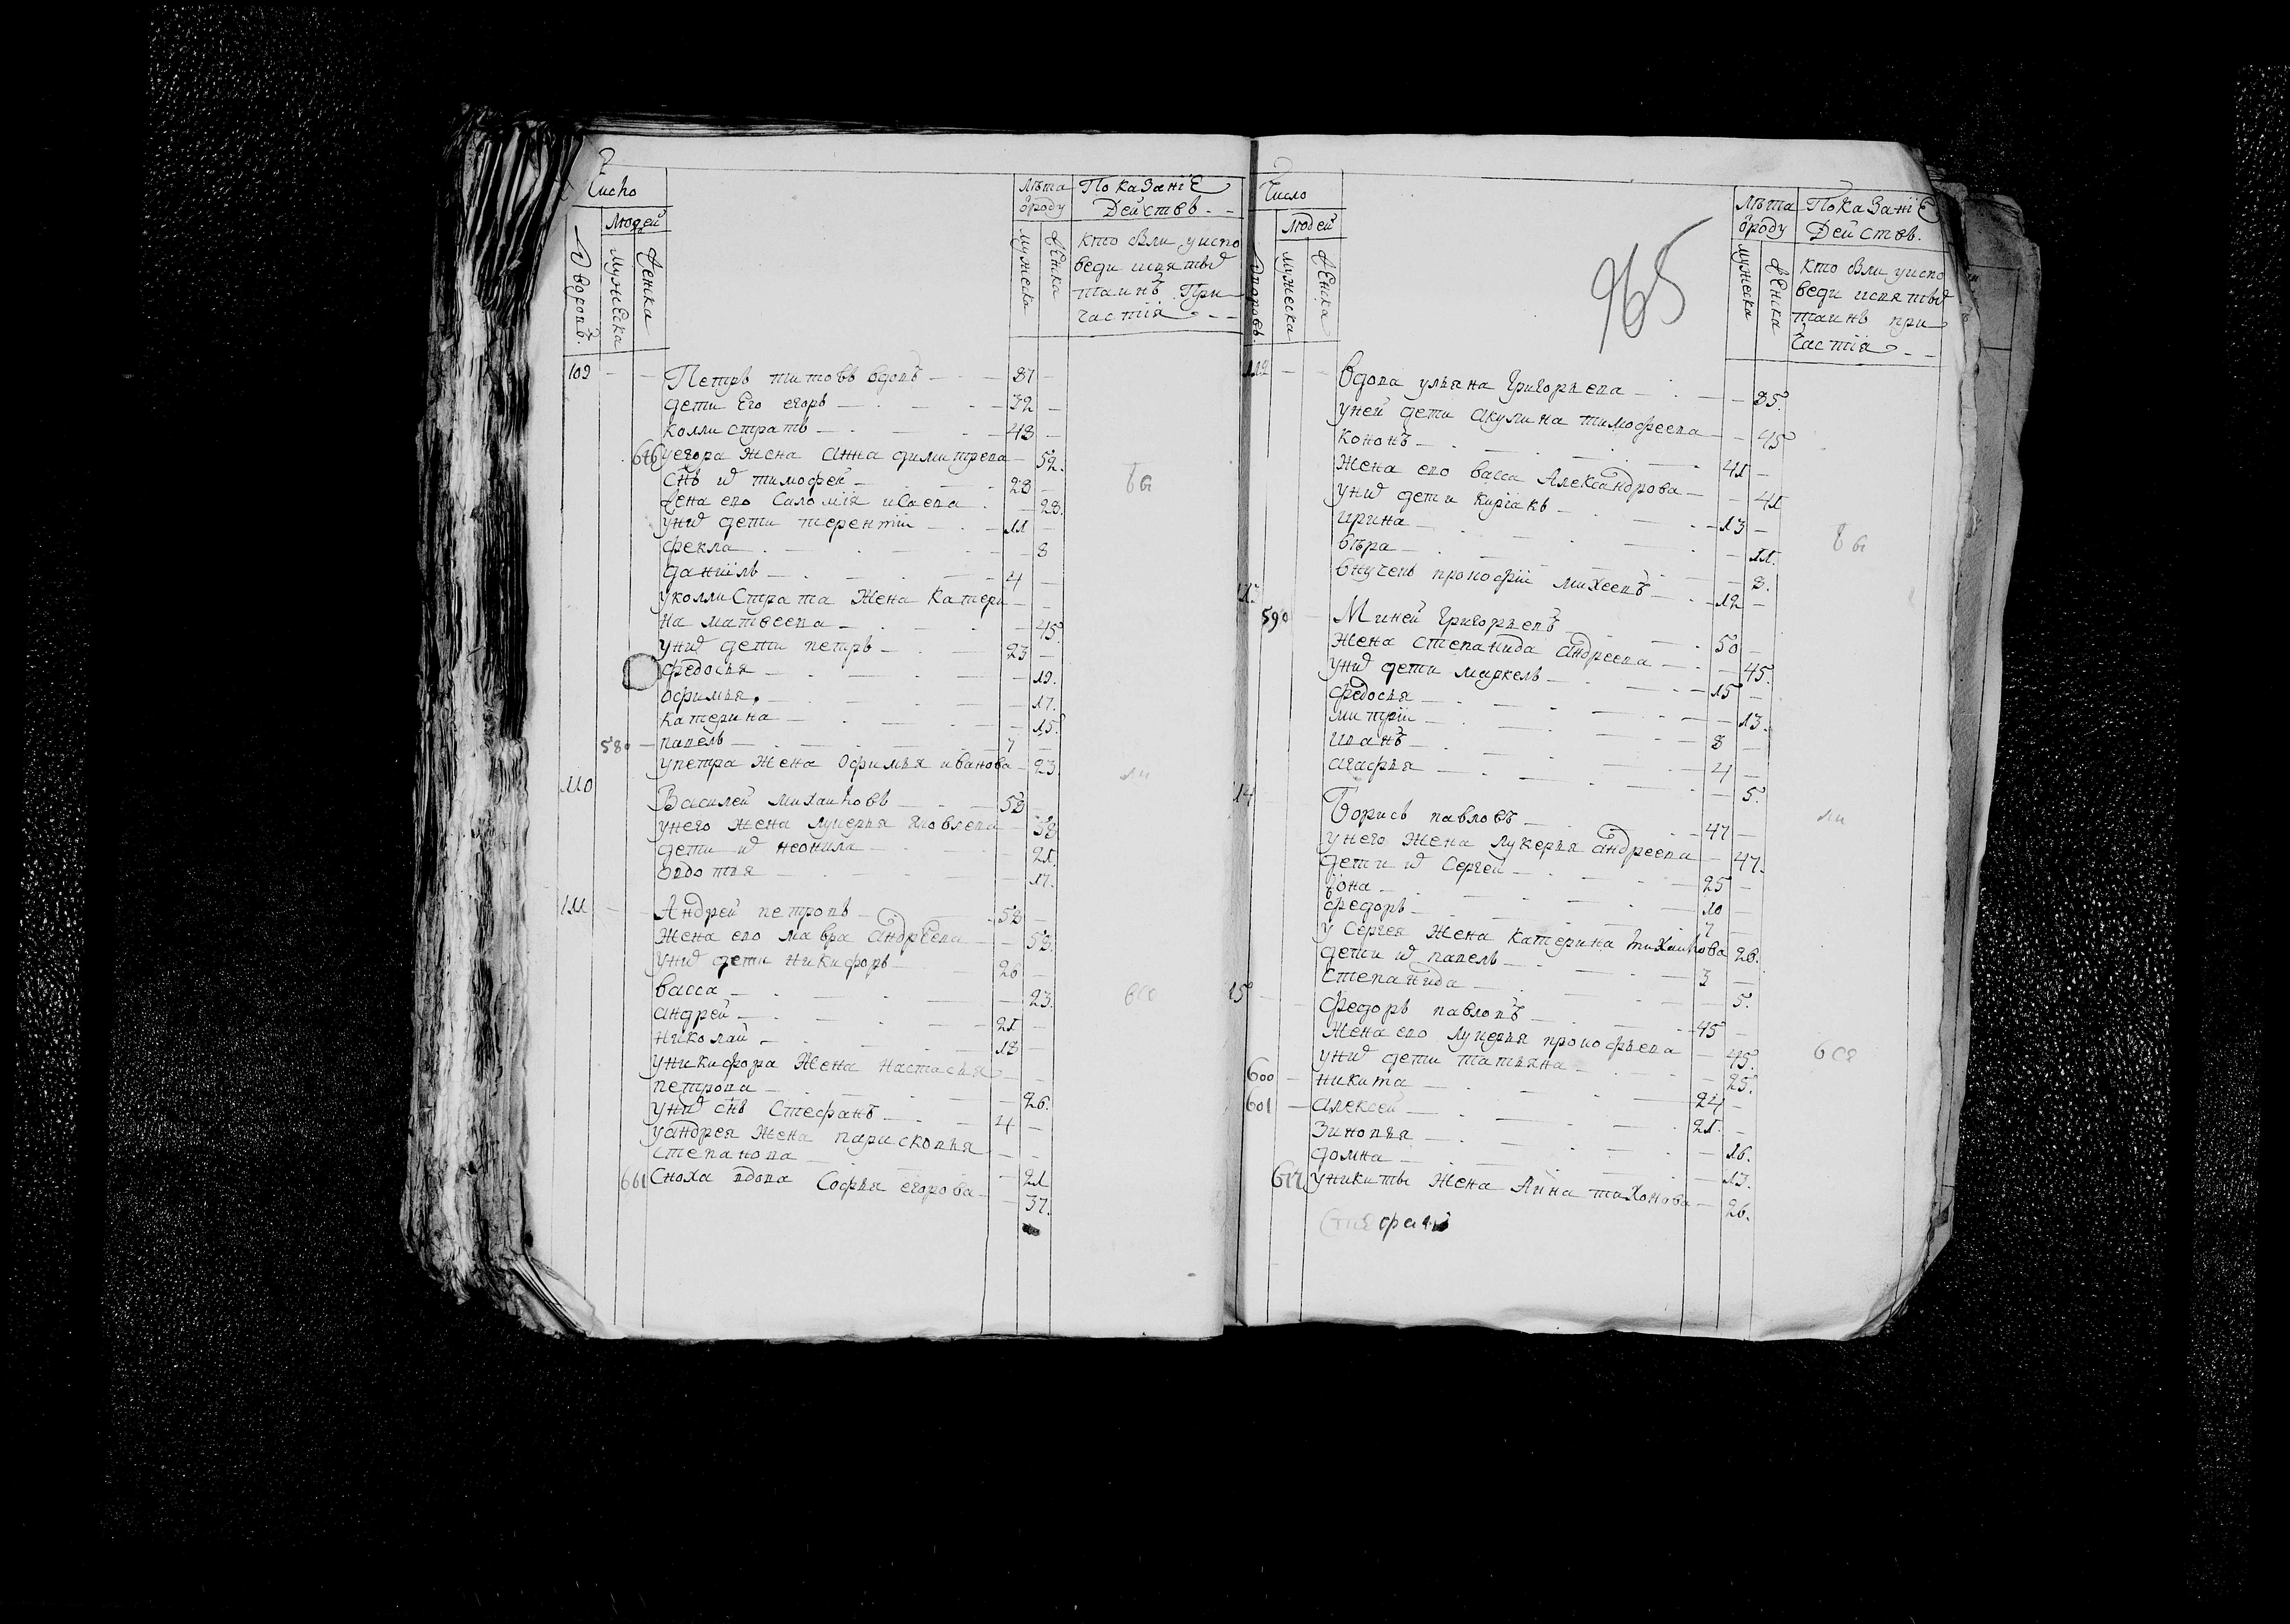 Число
Людей
Дворовъ
мужеска
женска
Лѣта
ѿроду
мужеска
женска
Показаніе
Действъ
кто были уиспо
веди исвятыхъ
таинъ При
частія
109 Петръ титовъ вдовъ 81
дети Его егоръ 32
коллистратъ 48
646 уегора жена Анна димитрева 52.
снъ их тимофей 28
жена ево Саломія исаева 28.
уних дети терентіи 11
фекла 8
даніилъ 4
уколлистрата Жена Катери
на матвеева 45
уних дети петръ 23
федосья 19.
офимья 17.
катерина 15.
580 павелъ 7
упетра жена Офимья иванова 23
110 Василей михаиловъ 58
унего жена лукерья яковлева 58
дети их неонила 21.
овдотья 17.
111 Андрей петровъ 58
жена ево мавра андреева 58.
уних дети никифоръ 26
васса 23.
андрей 21
николай 18
уникифора Жена настасья
петрова 26.
уних снъ Стефанъ 4
уандрея жена парисковья
степанова 21
661 Сноха вдова Софья егорова 37.
Число
Людей
Дворовъ
мужеска
женска
965
Лѣта
ѿроду
мужеска
женска
Показаніе
Действъ.
кто были уиспо
веди исвятыхъ
таинъ при
частія
112 Вдова ульяна Григорьева 85.
уней дети акулина тимофеева 45
кононъ 41
Жена ево васса Александрова 41
уних дети киріакъ 13
ирина 11.
вѣра 8.
внучекъ прокофіи михеевъ 12
590 Миней Григорьевъ 50
жена степанида андреева 45.
уних дети маркелъ 15
федосья 13.
митріи 8
иванъ 4
агафья 5.
14 Борисъ павловъ 47
унего жена лукерья андреева 47.
дети их Сергей 25
іона 10
федоръ 7
у Сергея жена катерина михаилова 26.
дети их павелъ 3
степанида 5.
15 Федоръ павловъ 45
жена ево лукерья прокофьева 45.
уних дети татьяна 25.
600 никита 24
601 алексей 21.
Зиновья 16.
домна 13.
677 уникиты жена Анна тихонова 26.